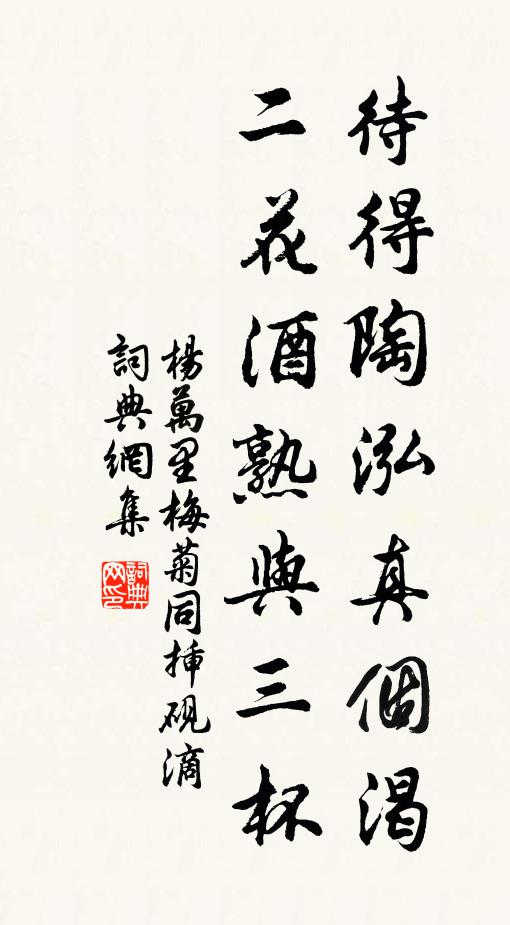 待得陶泓真個渴
二花酒熟與三杯
楊萬里梅菊同揷硯滴
詞典網集
詞典网印